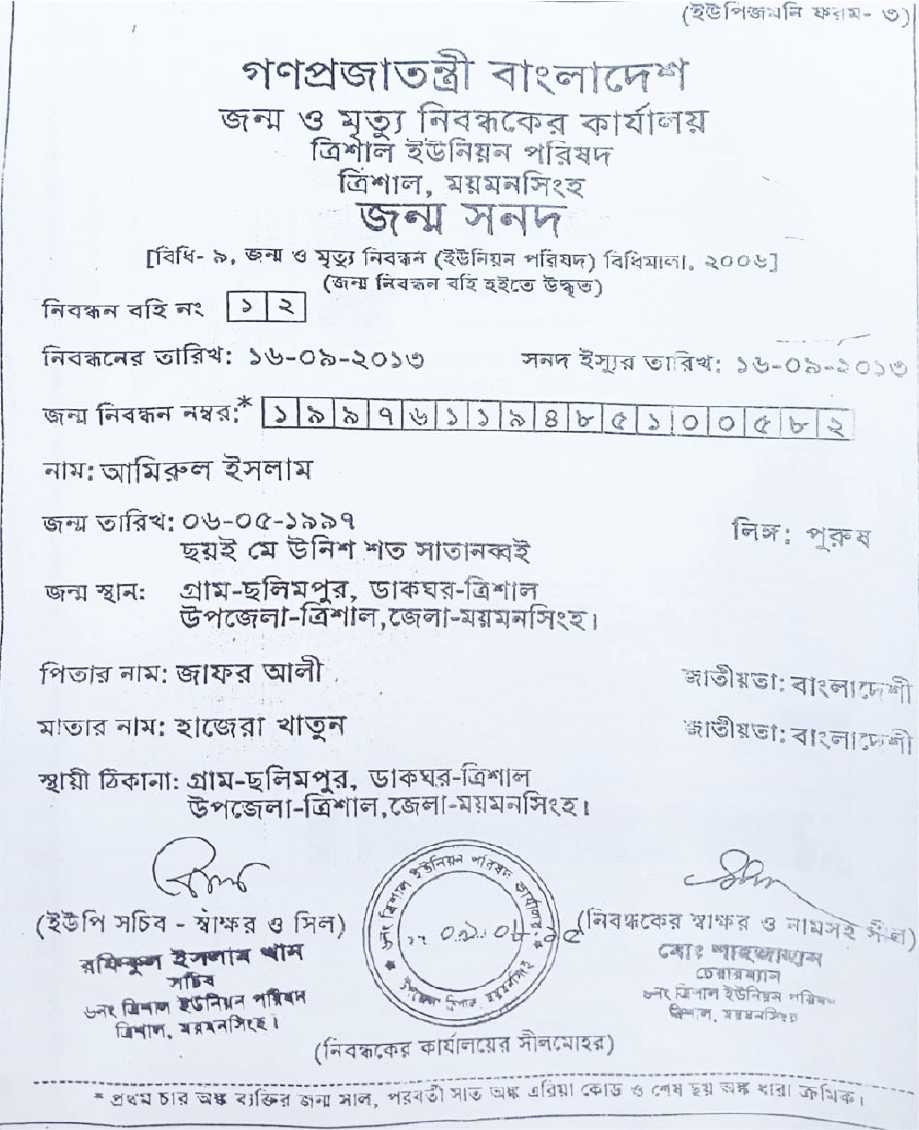 (ইউপিজমনি ফরম- ৩)
গণপ্রজাতন্ত্রী বাংলাদেশ
জন্ম ও মৃত্যু নিবন্ধকের কার্যালয়
ত্রিশাল ইউনিয়ন পরিষদ
ত্রিশাল, ময়মনসিংহ
জন্ম সনদ
[বিধি- ৯, জন্ম ও মৃত্যু নিবন্ধন (ইউনিয়ন পরিষদ) বিধিমালা, ২০০৬]
(জন্ম নিবন্ধন বহি হইতে উদ্ধৃত)
নিবন্ধন বহি নং ১২
নিবন্ধনের তারিখ: ১৬-০৯-২০১৩ সনদ ইস্যুর তারিখ: ১৬-০৯-২০১৩
জন্ম নিবন্ধন নম্বর:* ১৯৯৭৬১১৯৪৮৫১০০৫৮২
নাম: আমিরুল ইসলাম
জন্ম তারিখ: ০৬-০৫-১৯৯৭ লিঙ্গ: পুরুষ
ছয়ই মে উনিশ শত সাতানব্বই
জন্ম স্থান: গ্রাম-ছলিমপুর, ডাকঘর-ত্রিশাল
উপজেলা-ত্রিশাল,জেলা-ময়মনসিংহ।
পিতার নাম: জাফর আলী জাতীয়তা: বাংলাদেশী
মাতার নাম: হাজেরা খাতুন জাতীয়তা: বাংলাদেশী
স্থায়ী ঠিকানা: গ্রাম-ছলিমপুর, ডাকঘর-ত্রিশাল
উপজেলা-ত্রিশাল,জেলা-ময়মনসিংহ।
৬নং ত্রিশাল ইউনিয়ন পরিষদ কার্যালয়
(ইউপি সচিব - স্বাক্ষর ও সিল) (নিবন্ধকের স্বাক্ষর ও নামসহ সীল)
রফিকুল ইসলাম খান
সচিব চেয়ারম্যান
৬নং ত্রিশাল ইউনিয়ন পরিষদ ৬নং ত্রিশাল ইউনিয়ন পরিষদ
ত্রিশাল, ময়মনসিংহ। ত্রিশাল, ময়মনসিংহ
(নিবন্ধকের কার্যালয়ের সীলমোহর)
* প্রথম চার অঙ্ক ব্যক্তির জন্ম সাল, পরবর্তী সাত অঙ্ক এরিয়া কোড ও শেষ ছয় অঙ্ক ধারা ক্রমিক।